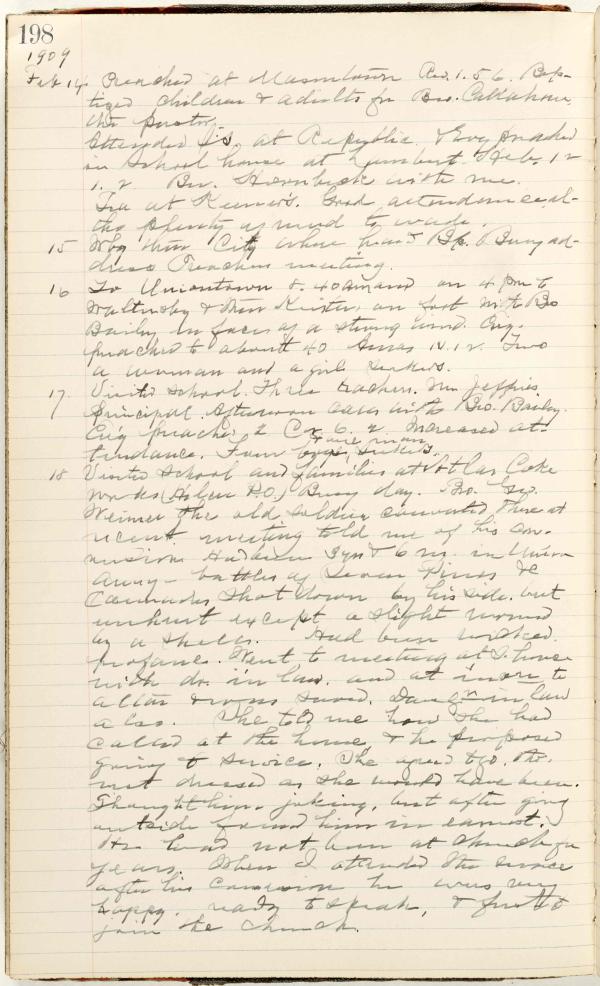 198
1909
Feb 14 Preached at Masontown Rev. 1. 5 6. Bap-
tized children & adults for Bro. Callahan,
the pastor.
Attended S.S. at Republic. & Evg preached
in School house at Lambert. Heb. 12
1. 2. Bro. Hornbeck with me.
Tea at Keener's. Good attendance al-
tho plenty of mud to wade.
15 Wby then City where heard Bp. Berry ad-
dress Preachers meeting.
16 To Uniontown 8.40 am and on 4 pm to
Waltersby & then Keister on foot with Bro
Bailey in face of a strong wind. Evg.
preached to about 40 Amos IV. 12. Two
a woman and a girl seekers.
17. Visited School. Three teachers. Mr Jeffries
Principal. Afternoon calls with Bro. Bailey.
Evg preached 2 Cor 6. 2. Increased at-
tendance. Four boys & one man seekers.
18 Visited School and families at Coke
Works P.O. Busy day. Bro. Geo.
Weimer the old soldier converted there at
recent meeting told me of his con-
version. Had been 3 yrs & 6 ms. in Union
Army - battles of Seven Pines &c
Comrades shot down by his side, but
unhurt except a slight wound
by a shell. Had been wicked
profane. Went to meeting at S. house
with dr. in law, and at went to
altar & was saved. Daughter in law
also. She told me how she had
called at the house, & he proposed
going to service. She agreed to go, tho.
not dressed as she would have been.
Thought him joking, but after going
outside found him in earnest.
He had not been at church for
years. When I attended the service
after his conversion he was very
happy, ready to speak, & first to
join the church.